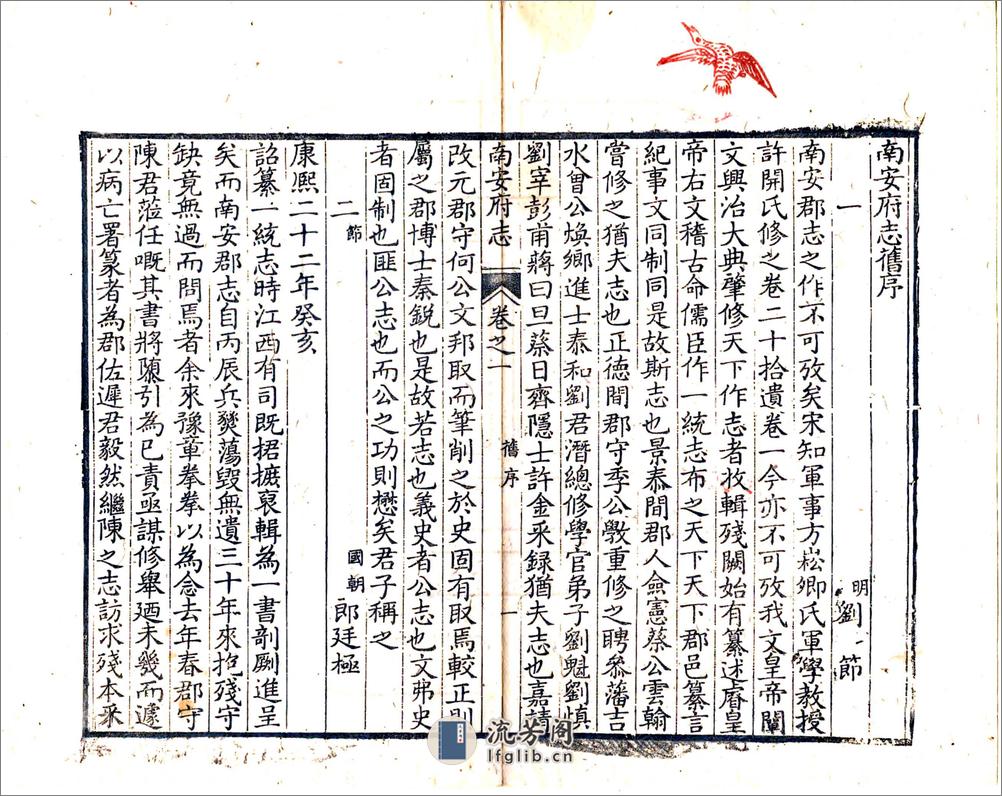 南安府志舊序
一 明劉 節
南安郡志之作不可攷矣宋知軍事方崧卿氏軍學教授
許開氏修之卷二十拾遺卷一今亦不可攷我文皇帝闡
文興治大典肇修天下作志者攷輯殘闕始有纂述睿皇
帝右文稽古命儒臣作一統志布之天下天下郡邑纂言
紀事文同制同是故斯志也景泰間郡人僉憲蔡公雲翰
嘗修之猶夫志也正德間郡守季公斆重修之聘叅藩吉
水曾公煥鄉進士泰和劉君潛總修學官弟子劉魁劉慎
劉宰彭甫蔣曰旦蔡日齊隱士許金釆録猶夫志也嘉靖
南安府志 卷之一 舊序 一
改元郡守何公文邦取而筆削之於史固有取焉較正則
屬之郡博士秦鋭也是故若志也義史者公志也文弗史
者固制也匪公志也而公之功則懋矣君子稱之
二節 國朝郎廷極
康熙二十二年癸亥
詔纂一統志時江西有司既捃摭裒輯為一書剞劂進呈
矣而南安郡志自丙辰兵燹蕩毀無遺三十年來抱殘守
缺竟無過而問焉者余來豫章拳拳以為念去年春郡守
陳君蒞任嘅其書將隳引為已責亟謀修舉廼未幾而遽
以病亡署篆者為郡佐遲君毅然繼陳之志訪求殘本釆
流芳阁
lfglib.cn